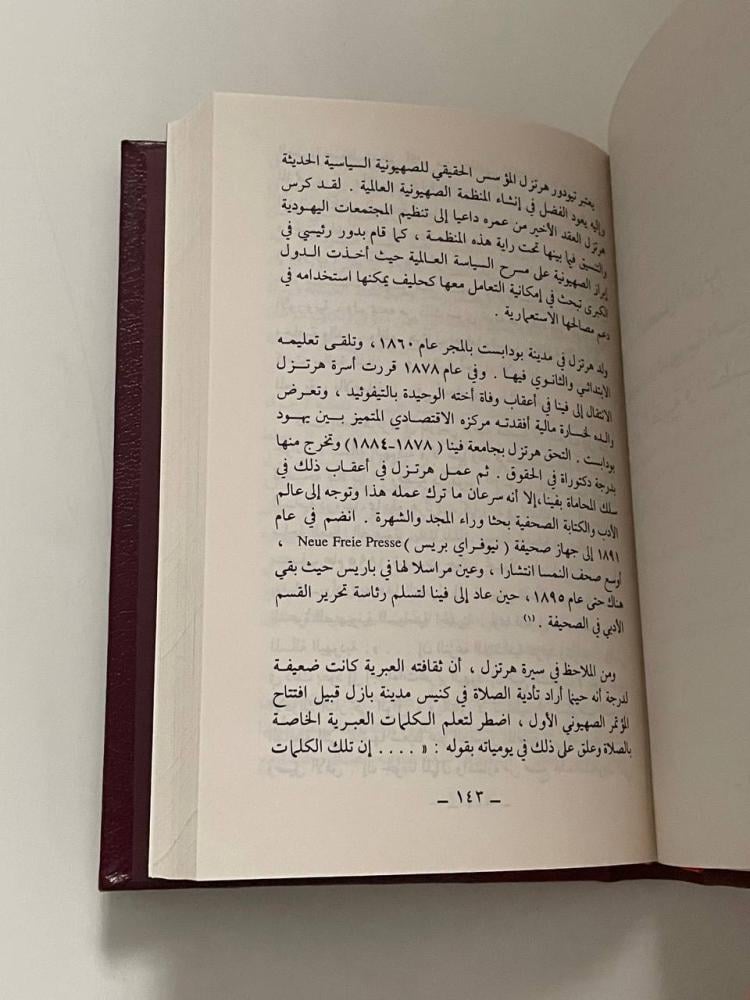 يعتبر تيودور هرتزل المؤسس الحقيقي للصهيونية السياسية الحديثة
وإليه يعود الفضل في إنشاء المنظمة الصهيونية العالمية . لقد كرس
هرتزل العقد الأخير من عمره داعيا إلى تنظيم المجتمعات اليهودية
والتنسيق فيما بينها تحت راية هذه المنظمة ، كما قام بدور رئيسي في
إبراز الصهيونية على مسرح السياسة العالمية حيث أخذت الدول
الكبرى تبحث في إمكانية التعامل معها كحليف يمكنها استخدامه في
دعم مصالحها الاستعمارية .
ولد هرتزل في مدينة بودابست بالمجر عام ١٨٦٠ ، وتلقى تعليمه
الابتدائي والثانوي فيها . وفي عام ١٨٧٨ قررت أسرة هرتزل
الانتقال إلى فينا في أعقاب وفاة أخته الوحيدة بالتيفوئيد ، وتعرض
والده لخسارة مالية أفقدته مركزه الاقتصادي المتميز بين يهود
بودابست . التحق هرتزل بجامعة فينا ( ١٨٧٨-١٨٨٤) وتخرج منها
بدرجة دكتوراة في الحقوق . ثم عمل هرتزل في أعقاب ذلك في
سلك المحاماة بفينا،إلا أنه سرعان ما ترك عمله هذا وتوجه إلى عالم
الأدب والكتابة الصحفية بحثا وراء المجد والشهرة . انضم في عام
١٨٩١ إلى جهاز صحيفة ( نيوفراي بريس ) Neue Freie Presse ،
أوسع صحف النمسا انتشارا ، وعين مراسلا لها في باريس حيث بقي
هناك حتى عام ١٨٩٥ ، حين عاد إلى فينا لتسلم رئاسة تحرير القسم
الأدبي في الصحيفة . (١)
ومن الملاحظ في سيرة هرتزل ، أن ثقافته العبرية كانت ضعيفة
لدرجة أنه حينما أراد تأدية الصلاة في كنيس مدينة بازل قبيل افتتاح
المؤتمر الصهيوني الأول ، اضطر لتعلم الكلمات العبرية الخاصة
بالصلاة وعلق على ذلك في يومياته بقوله : « . . . . إن تلك الكلمات
ـ ١٤٣ ـ